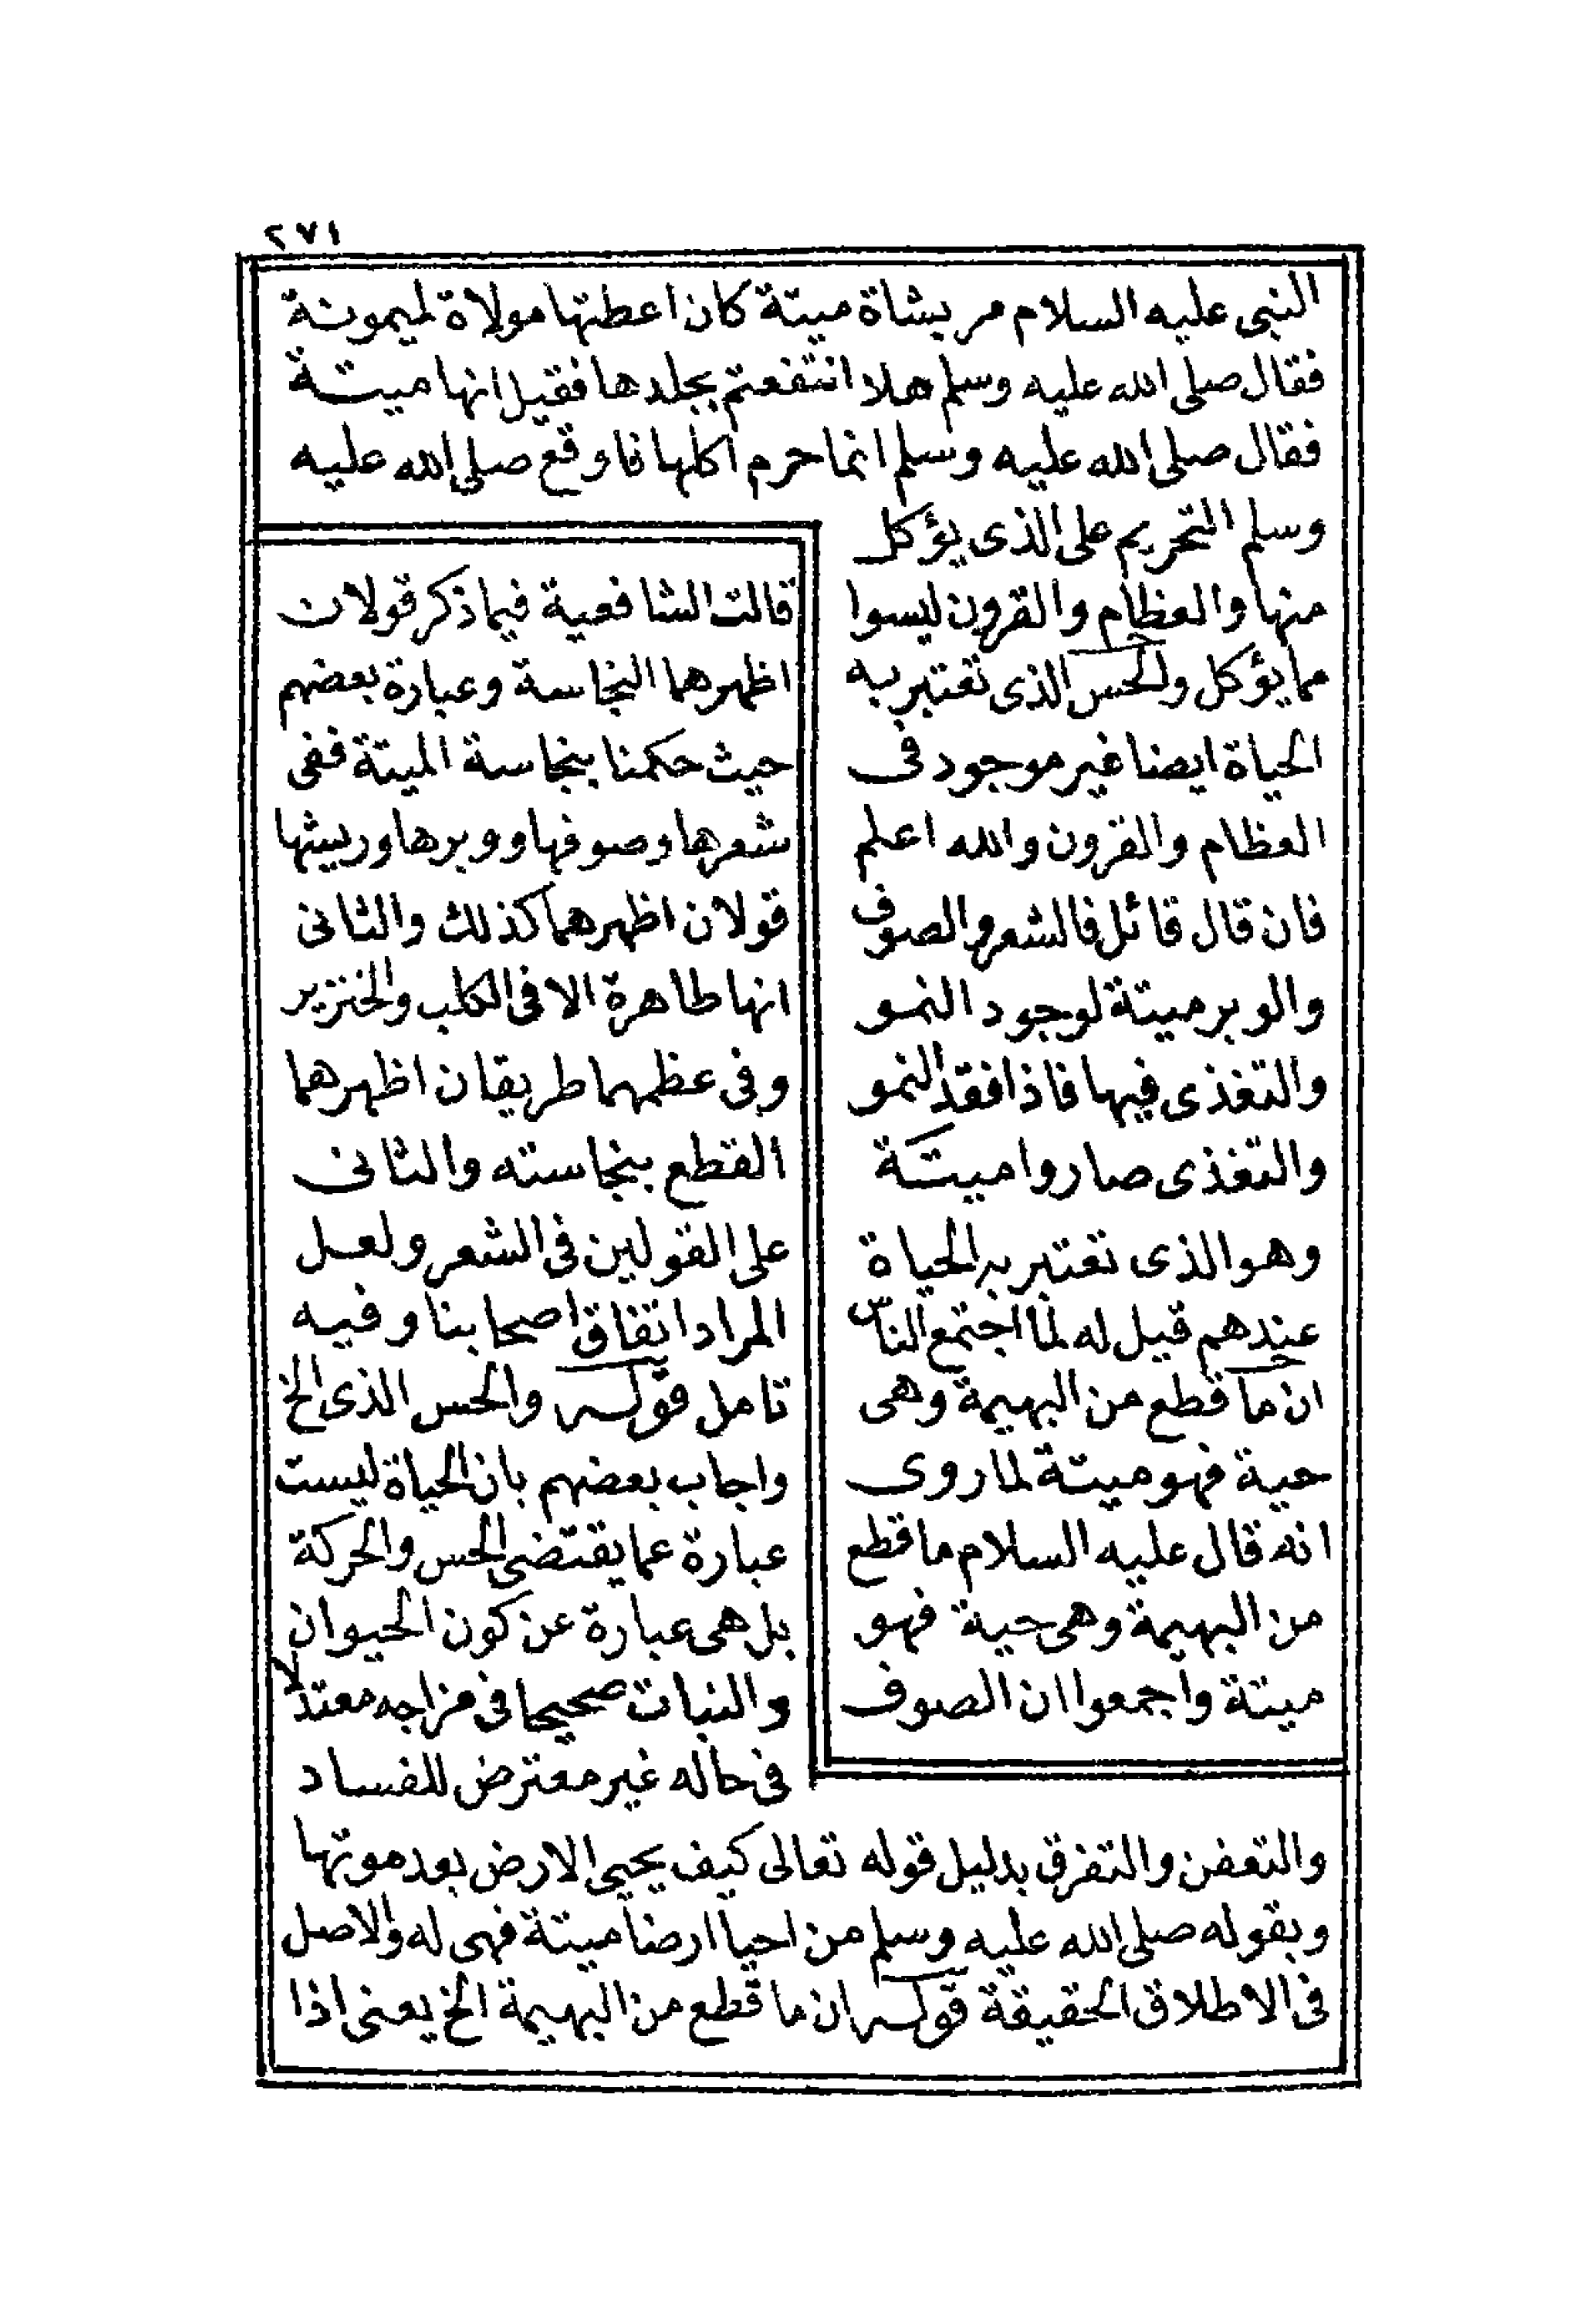 ٢٧١
النبى عليه السلام مر بشاة ميتة كان اعطتها مولاة لميمونة
فقال صلى الله عليه وسلم هلا انتفعتم بجلدها فقيل انها ميتة
فقال صلى الله عليه وسلم انما حرم اكلها فاوقع صلى الله عليه
وسلم التحريم على الذى يؤكل
منها والعظام والقرون ليسوا
مما يؤكل والحس الذى تعتبر به
الحياة ايضا غير موجود فى
العظام والقرون والله اعلم
فان قال قائل فالشعر والصوف
والوبر ميتة لوجود النمو
والتغذى فيها فاذا فقد النمو
والتغذى صاروا ميتة
وهو الذى تعتبر به الحياة
عندهم قيل له لما اجتمع الناس
ان ما قطع من البهيمة وهى
حية فهو ميتة لما روى
انه قال عليه السلام ما قطع
من البهيمة وهى حية فهو
ميتة واجمعوا ان الصوف
قالت الشافعية فيما ذكر قولان
اظهرهما النجاسة وعبارة بعضهم
حيث حكمنا بنجاسة الميتة ففى
شعرها وصوفها ووبرها وريشها
قولان اظهرهما كذلك والثانى
انها طاهرة الا فى الكلب والخنزير
وفى عظمهما طريقان اظهرهما
القطع بنجاسته والثانى
على القولين فى الشعر ولعل
المراد اتفاق اصحابنا وفيه
تامل قوله والحس الذى الخ
واجاب بعضهم بان الحياة ليست
عبارة عما يقتضى الحس والحركة
بل هى عبارة عن كون الحيوان
والنبات صحيحا فى مزاجه معتدلا
فى حاله غير معترض للفساد
والتعفن والتفرق بدليل قوله تعالى كيف يحيى الارض بعد موتها
وبقوله صلى الله عليه وسلم من احيا ارضا ميتة فهى له والاصل
فى الاطلاق الحقيقة قوله ان ما قطع من البهيمة الخ يعنى اذا